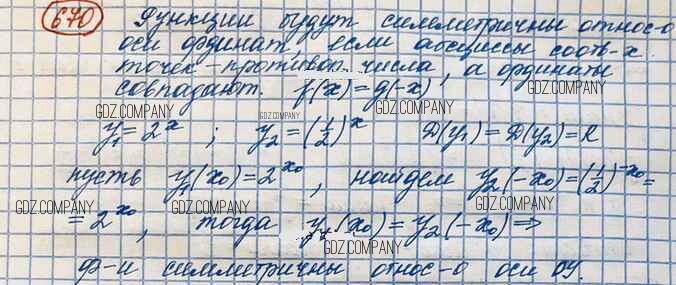 670 Функции будут симметричны относ-о
оси ординат, если абсциссы соотв-х
точек – противоп. числа, а ординаты
совпадают. f(x) = g(-x)
GDZ.COMPANY GDZ.COMPANY GDZ.COMPANY
y₁ = 2ˣ ; y₂ = (1/2)ˣ D(y₁) = D(y₂) = R
пусть y₁(x₀) = 2^x₀, найдем y₂(-x₀) = (1/2)^-x₀ =
GDZ.COMPANY GDZ.COMPANY GDZ.COMPANY
= 2^x₀, тогда y₁(x₀) = y₂(-x₀) ⇒
GDZ.COMPANY
ф-и симметричны относ-о оси OY.